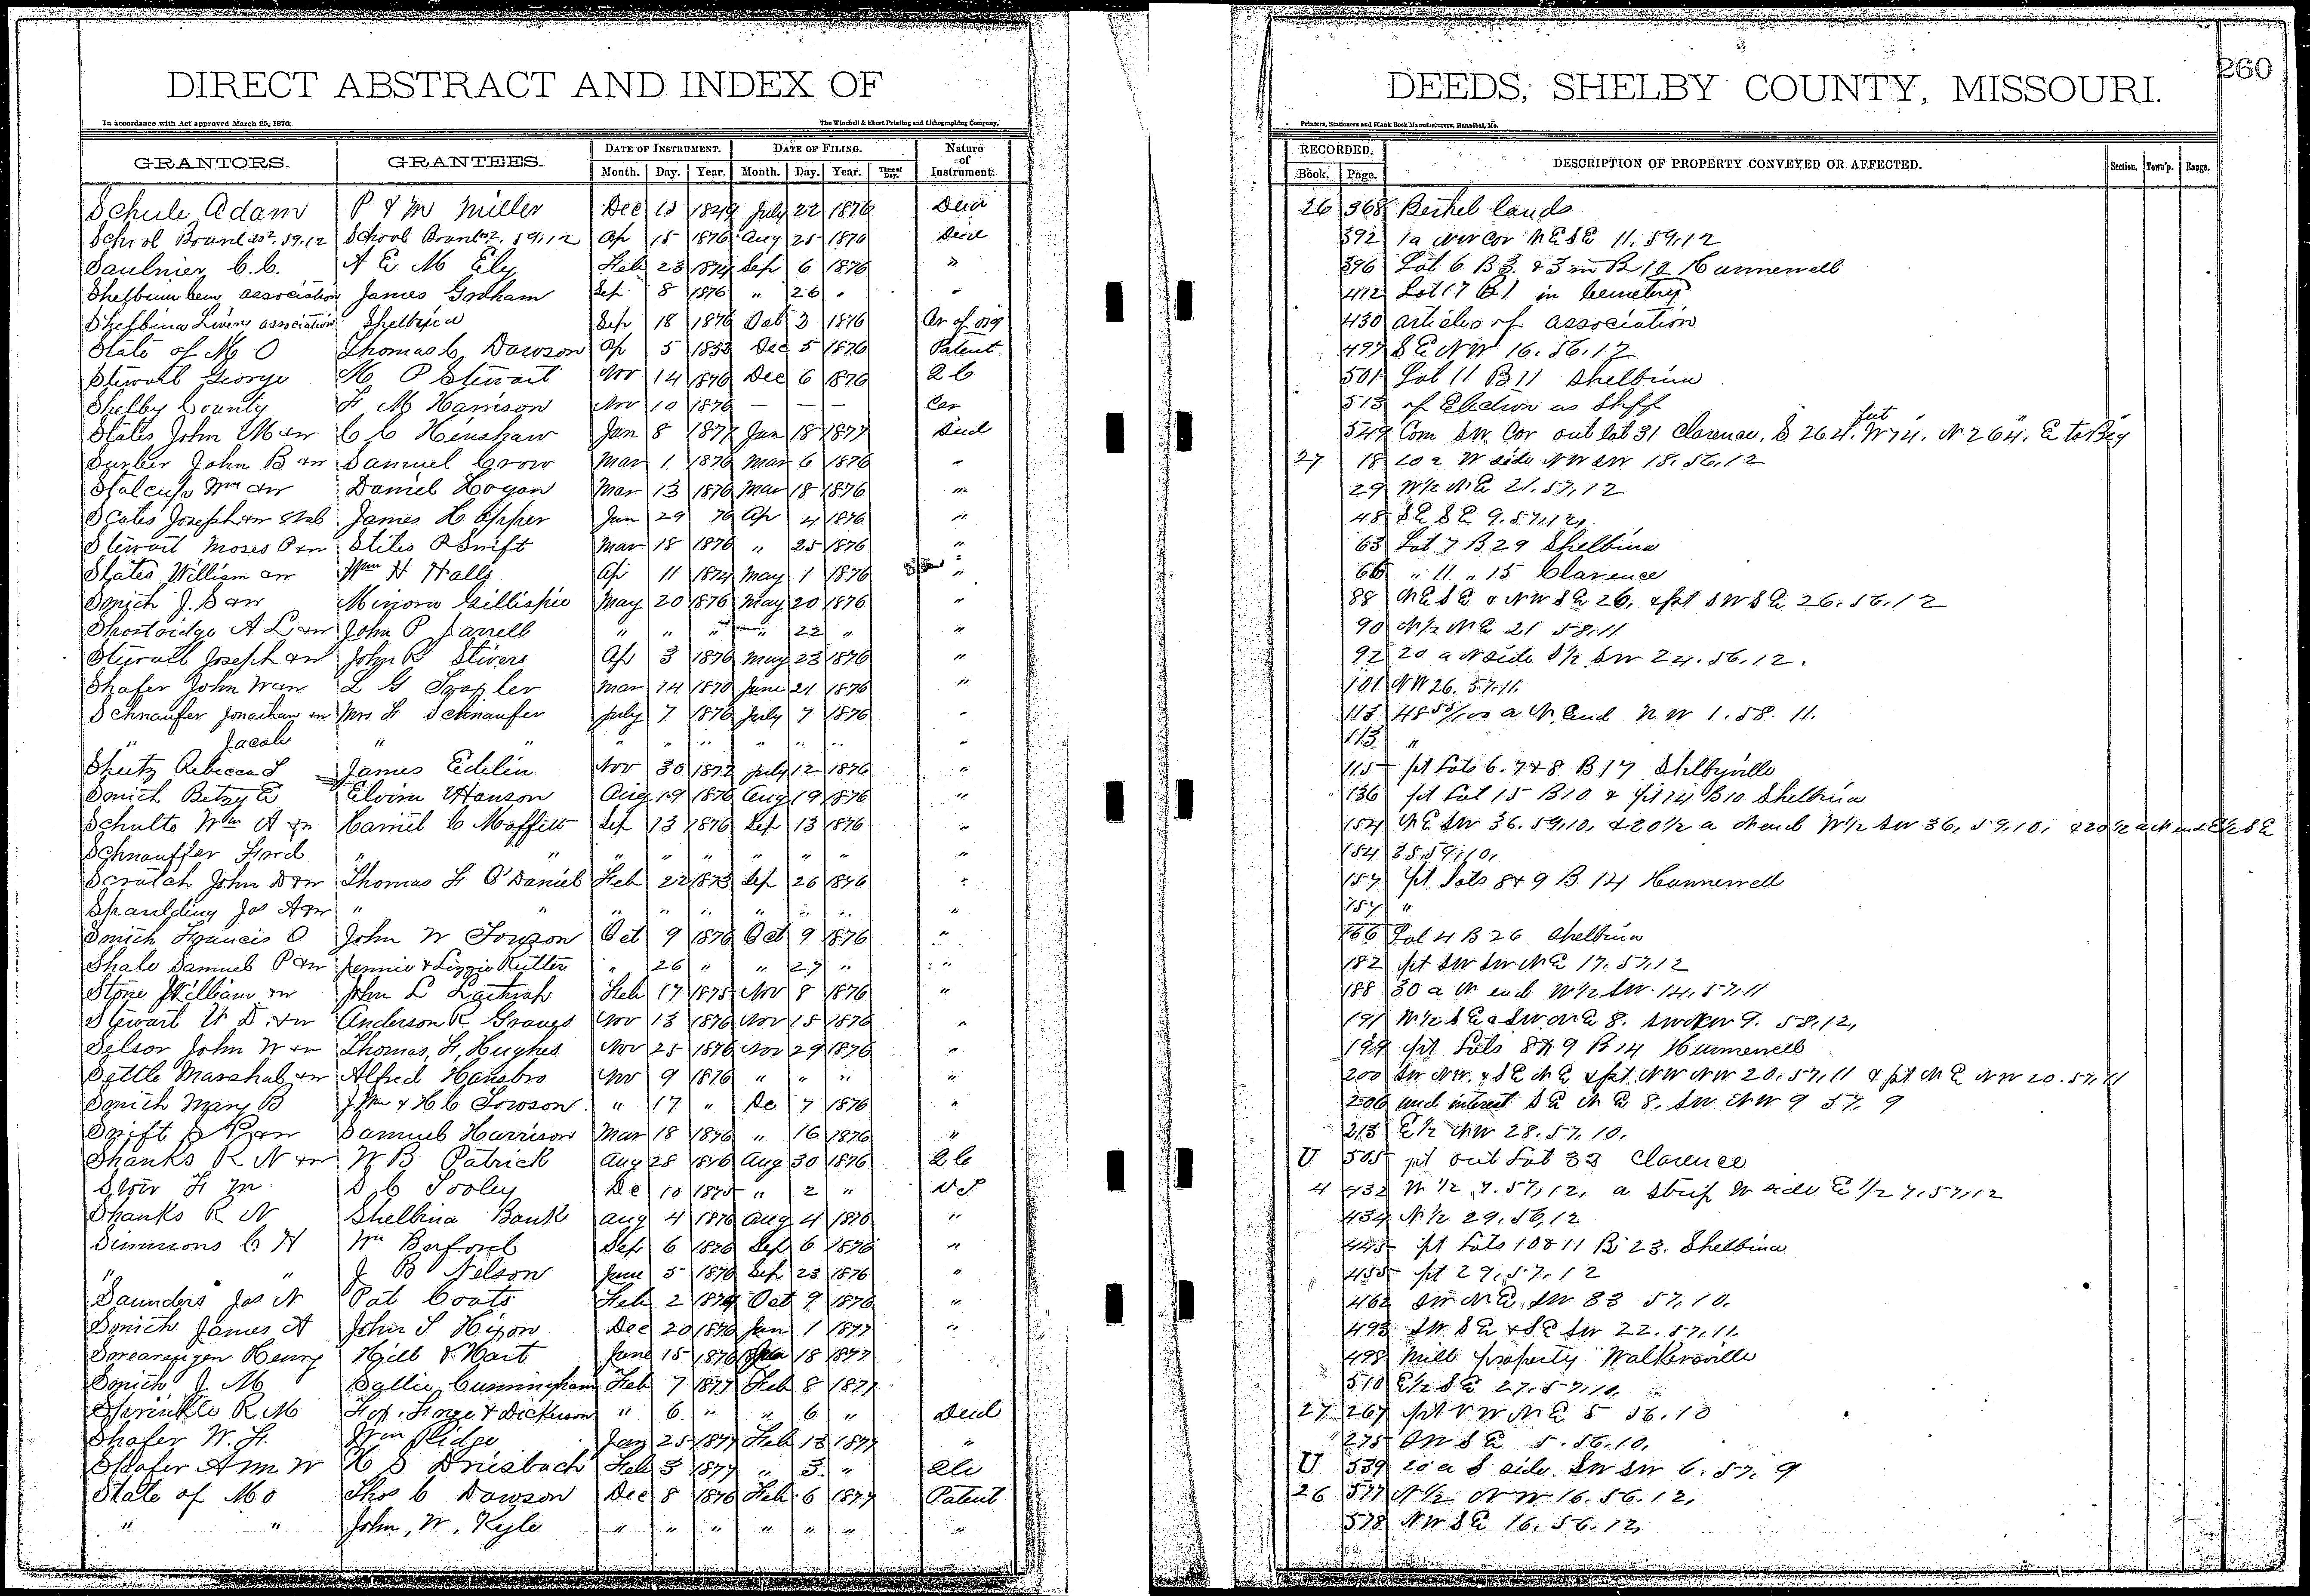 260
DIRECT ABSTRACT AND INDEX OF DEEDS, SHELBY COUNTY, MISSOURI.
In accordance with Act approved March 25, 1870. The Winchell & Ebert Printing and Lithographing Company, Printers, Stationers and Blank Book Manufacturers, Hannibal, Mo.
GRANTORS. GRANTEES. DATE OF INSTRUMENT. DATE OF FILING. Nature of Instrument. RECORDED. DESCRIPTION OF PROPERTY CONVEYED OR AFFECTED. Section. Town'p. Range.
Month. Day. Year. Month. Day. Year. Time of Day. Book. Page.
Schule Adam P & M Miller Dec 15 1849 July 22 1876 Deed 26 368 Bethel lands
School Board 2. 59.12 School Board 2. 59.12 Ap 15 1876 Aug 25 1876 Deed 392 1a NW cor NE SE 11. 59.12
Saulnier C. C. A E M Ely Feb 23 1874 Sep 6 1876 " 396 Lot 6 B 3 & 3 in B 12 Hunnewell
Shelbina Cem association James Graham Sep 8 1876 " 26 " " 412 Lot 17 B 1 in Cemetery
Shelbina Livery association Shelbina Sep 18 1876 Oct 3 1876 Ar of 430 articles of association
State of M O Thomas C Dawson Ap 5 1853 Dec 5 1876 Patent 497 S E NW 16. 56. 12
Stewart George M P Stewart Nov 14 1876 Dec 6 1876 2 C 501 Lot 11 B 11 Shelbina
Shelby County F M Harrison Nov 10 1876 — — — Cer 513 of Election as Shff
States John M & w C C Henshaw Jan 8 1877 Jan 18 1877 Deed 549 Com SW Cor out lot 31 Clarence. S 264. feet W 74. N 264. E to Beg
Surber John B & w Samuel Crow Mar 1 1876 Mar 6 1876 " 27 18 20 a W side NW SW 18. 56. 12
Stalcup Wm & w Daniel Hogan Mar 13 1876 Mar 18 1876 " 29 W½ NE 21. 57. 12
Scates Joseph & w James H Apper Jan 29 76 Ap 4 1876 " 48 S E S E 9. 57. 12
Stewart Moses P & w Stiles R Swift Mar 18 1876 " 25 1876 " 63 Lot 7 B 29 Shelbina
States William & w Wm H Walls Ap 11 1874 May 1 1876 " 66 " 11 " 15 Clarence
Smith J. S & w Minora Gillispie May 20 1876 May 20 1876 " 88 NE SE & NW SE 26, & pt SW SE 26. 56. 12
Shostridge A L & w John P Jarrell " " " " 22 " " 90 N½ NE 21 58. 11
Stewart Joseph & w John R Stivers Ap 3 1876 May 23 1876 " 92 20 a N side S½ SW 24. 56. 12.
Shafer John W & w L G Trapler Mar 14 1870 June 21 1876 " 101 NW 26. 57. 11.
Schnaufer Jonathan & w Mrs F Schnaufer July 7 1876 July 7 1876 " 113 48 55/100 a N. End NW 1. 58. 11.
" Jacob " " " " " " " " " 113 "
Sheetz Rebecca S James Edelin Nov 30 1872 July 12 1876 " 115 pt Lots 6. 7 & 8 B 17 Shelbyville
Smith Betsy E Elvira Hanson Aug 19 1876 Aug 19 1876 " 136 pt Lot 15 B 10 & pt 14 B 10 Shelbina
Schults Wm A & w Harriet C Moffett Sep 13 1876 Sep 13 1876 " 154 NE SW 36. 59. 10, & 20½ a N end W½ SW 36. 59. 10. & 20½ a N end E½ SE
Schnauffer Fred " " " " " " " " " 154 35. 59. 10.
Scrutch John D & w Thomas F O'Daniel Feb 22 1873 Sep 26 1876 " 157 pt Lots 8 & 9 B 14 Hunnewell
Spaulding Jas A & w " " " " " " " " " 157 "
Smith Francis O John W Towson Oct 9 1876 Oct 9 1876 " 166 Lot 4 B 26 Shelbina
Shale Samuel P & w Jennie & Lizzie Rutter " 26 " " 27 " " 182 pt SW SW NE 17. 57. 12
Stone William & w John L Lathrop Feb 17 1875 Nov 8 1876 " 188 30 a N end W½ SW. 14. 57. 11
Stewart W D. & w Anderson R Graves Nov 13 1876 Nov 15 1876 " 191 W½ S E & SW NE 8. SW NW 9. 58. 12,
Selsor John W & w Thomas, F, Hughes Nov 25 1876 Nov 29 1876 " 199 pt Lots 8 & 9 B 14 Hunnewell
Settle Marshal & w Alfred Hansbro Nov 9 1876 " " " " 200 SW NW. & SE NE & pt NW NW 20. 57. 11 & pt NE NW 20. 57. 11
Smith Mary B J Wm & H C Towson " 17 " De 7 1876 " 206 und interest S E N E 8. SW NW 9 57. 9
Swift S R & w Samuel Harrison Mar 18 1876 " 16 1876 " 213 E½ NW 28. 57. 10.
Shanks R N & w W B Patrick Aug 28 1876 Aug 30 1876 2 C U 505 pt out Lot 33 Clarence
Slow F M S C Tooley De 10 1875 " 2 " 4 432 W ½ 7. 57, 12, a strip W side E ½ 7. 57. 12
Shanks R N Shelbina Bank Aug 4 1876 Aug 4 1876 " 434 N½ 29. 56. 12
Simmons C H Wm Burford Sep 6 1876 Sep 6 1876 " 445 pt Lots 10 & 11 B 23. Shelbina
" " J B Nelson June 5 1876 Sep 23 1876 " 455 pt 29. 57. 12
Saunders Jas N Pat Coats Feb 2 1874 Oct 9 1876 " 462 SW NE, SW 33 57. 10.
Smith James A John S Hixon Dec 20 1876 Jan 1 1877 " 493 SW SE & SE SW 22. 57. 11.
Swearengen Henry Hill & Hart June 15 1876 Jan 18 1877 498 Mill property Walkersville
Smith J M Sallie Cunningham Feb 7 1877 Feb 8 1877 510 E½ S E 27. 57. 10.
Sprinkle R M Fox, Finge & Dickerson " 6 " " 6 " Deed 27 267 pt NW NE 5 56. 10
Shafer W. F. Wm Ridge Jan 25 1877 Feb 13 1877 " " 275 SW SE 5. 56. 10.
Shafer Ann W H S Driesbach Feb 3 1877 " 3. " U 539 20 a S side. SW SW 6. 57. 9
State of Mo Thos C Dawson Dec 8 1876 Feb 6 1877 Patent 26 577 N½ NW 16. 56. 12.
" " John, W, Kyle " " " " " " " 578 NW SE 16. 56. 12.